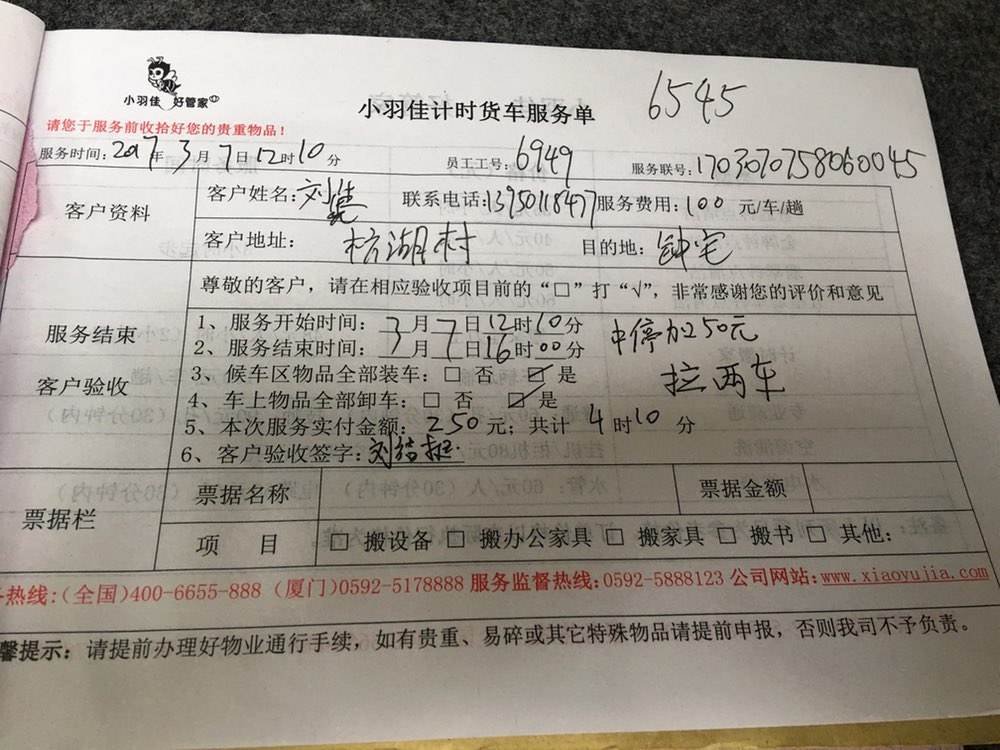 小羽佳 好管家
小羽佳计时货车服务单 6545
请您于服务前收拾好您的贵重物品！
服务时间：2017年3月7日12时10分 员工工号：6949 服务联号：1703070758060045
客户资料
客户姓名：刘 联系电话：13950118477 服务费用：100 元/车/趟
客户地址：枋湖村 目的地：钟宅
尊敬的客户，请在相应验收项目前的“□”打“√”，非常感谢您的评价和意见
服务结束
客户验收
1、服务开始时间：3月7日12时10分 中停加250元
2、服务结束时间：3月7日16时00分
3、候车区物品全部装车：□ 否 ☑ 是 拉两车
4、车上物品全部卸车：□ 否 ☑ 是
5、本次服务实付金额：250元；共计4时10分
6、客户验收签字：刘
票据栏
票据名称 票据金额
项 目 □ 搬设备 □ 搬办公家具 □ 搬家具 □ 搬书 □ 其他：
热线：(全国)400-6655-888 (厦门)0592-5178888 服务监督热线：0592-5888123 公司网站：www.xiaoyujia.com
馨提示：请提前办理好物业通行手续，如有贵重、易碎或其它特殊物品请提前申报，否则我司不予负责。